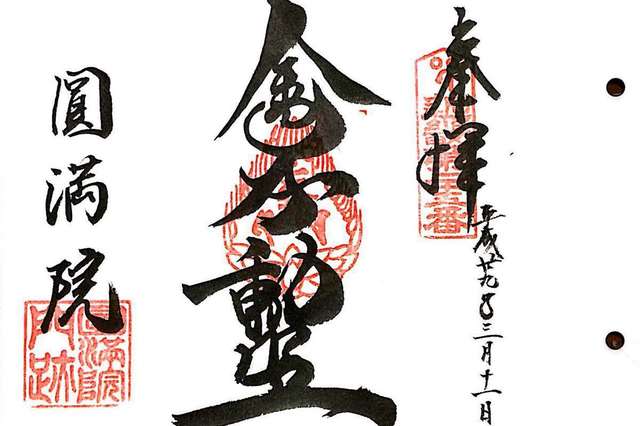 奉拝
平成廿九年三月十一日
金不動
圓満院
圓満院
門跡